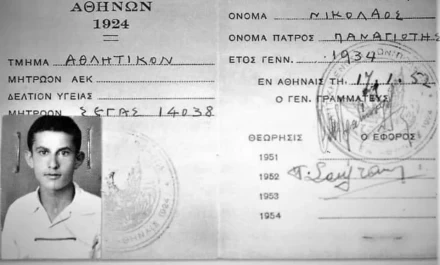 ΑΘΗΝΩΝ
1924
ΤΜΗΜΑ ΑΘΛΗΤΙΚΟΝ
ΜΗΤΡΩΟΝ ΑΕΚ
ΔΕΛΤΙΟΝ ΥΓΕΙΑΣ
ΜΗΤΡΩΟΝ ΣΕΓΑΣ 14038
ΟΝΟΜΑ ΝΙΚΟΛΑΟΣ
ΟΝΟΜΑ ΠΑΤΡΟΣ ΠΑΝΑΓΙΩΤΗΣ
ΕΤΟΣ ΓΕΝΝ. 1934
ΕΝ ΑΘΗΝΑΙΣ ΤΗ 17.1.52
Ο ΓΕΝ. ΓΡΑΜΜΑΤΕΥΣ
Ο ΕΦΟΡΟΣ
ΘΕΩΡΗΣΙΣ
1951
1952
1953
1954